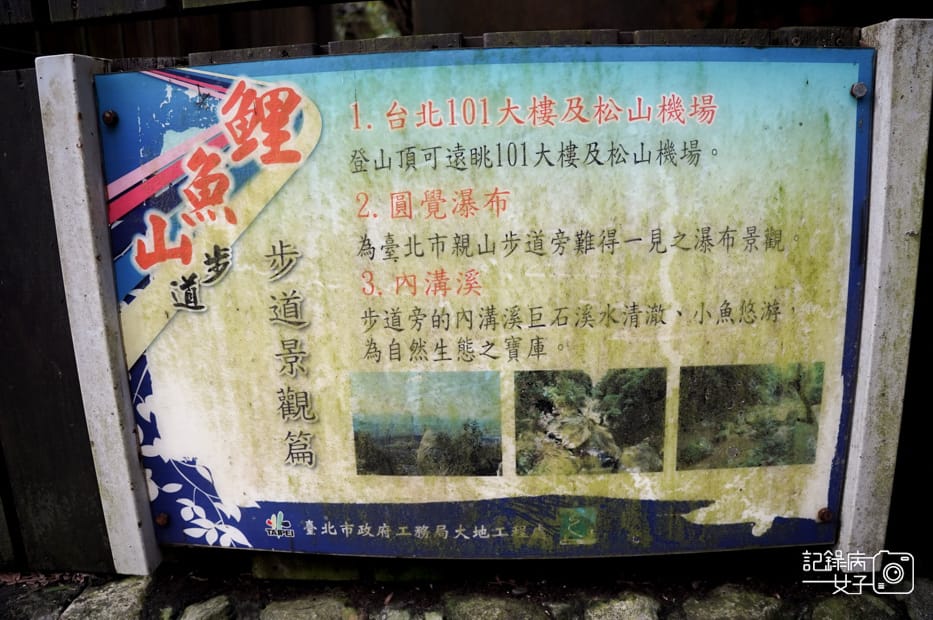 鯉魚山
步道
步道景觀篇
1. 台北101大樓及松山機場
登山頂可遠眺101大樓及松山機場。
2. 圓覺瀑布
為臺北市親山步道旁難得一見之瀑布景觀。
3. 內溝溪
步道旁的內溝溪巨石溪水清澈、小魚悠游，
為自然生態之寶庫。
TAIPEI
臺北市政府工務局大地工程處
記錄病
女子